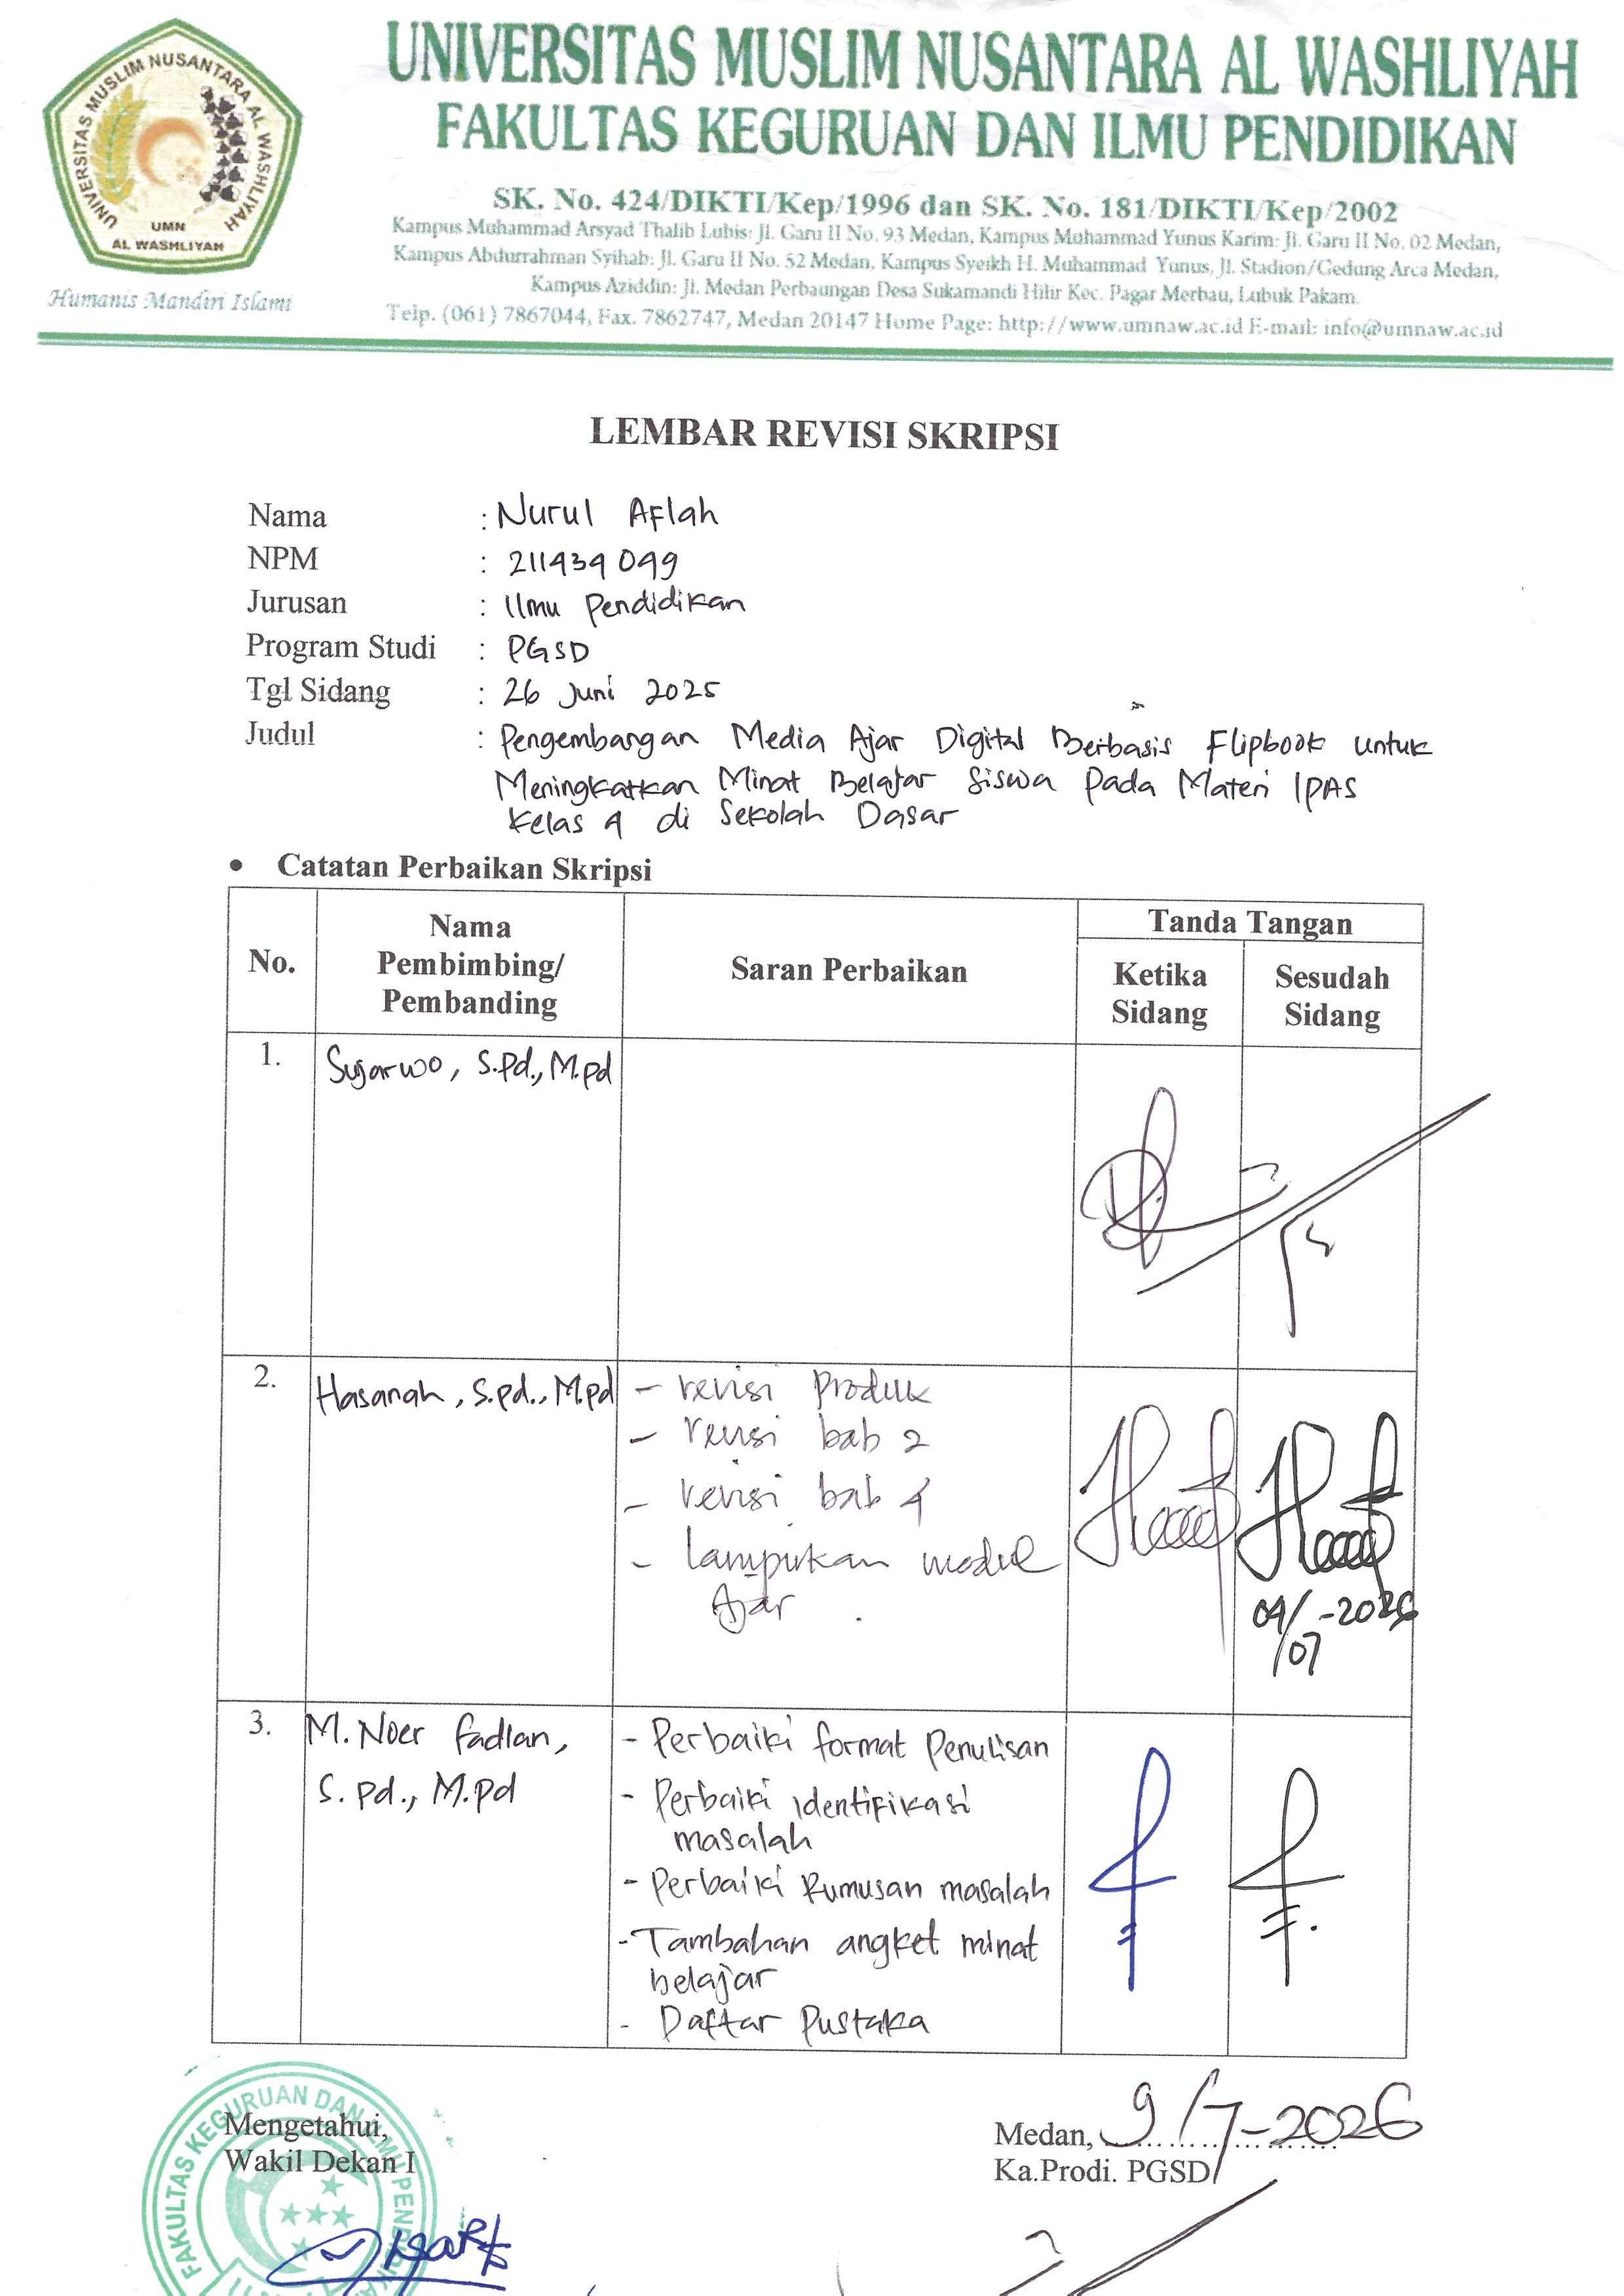 UNIVERSITAS MUSLIM NUSANTARA AL WASHLIYAH
UMN
AL WASHLIYAH
Humanis Mandiri Islami
UNIVERSITAS MUSLIM NUSANTARA AL WASHLIYAH
FAKULTAS KEGURUAN DAN ILMU PENDIDIKAN
SK. No. 424/DIKTI/Kep/1996 dan SK. No. 181/DIKTI/Kep/2002
Kampus Muhammad Arsyad Thalib Lubis: Jl. Garu II No. 93 Medan, Kampus Muhammad Yunus Karim: Jl. Garu II No. 02 Medan,
Kampus Abdurrahman Syihab: Jl. Garu II No. 52 Medan, Kampus Syeikh H. Muhammad Yunus, Jl. Stadion/Gedung Arca Medan,
Kampus Aziddin: Jl. Medan Perbaungan Desa Sukamandi Hilir Kec. Pagar Merbau, Lubuk Pakam.
Telp. (061) 7867044, Fax. 7862747, Medan 20147 Home Page: http://www.umnaw.ac.id E-mail: info@umnaw.ac.id
LEMBAR REVISI SKRIPSI
Nama : Nurul Aflah
NPM : 211434049
Jurusan : Ilmu Pendidikan
Program Studi : PGSD
Tgl Sidang : 26 Juni 2025
Judul : Pengembangan Media Ajar Digital Berbasis Flipbook untuk
Meningkatkan Minat Belajar Siswa Pada Materi IPAS
Kelas 4 di Sekolah Dasar
• Catatan Perbaikan Skripsi
No. Nama Pembimbing/ Pembanding Saran Perbaikan Tanda Tangan
Ketika Sidang Sesudah Sidang
1. Sujarwo, S.Pd., M.Pd
2. Hasanah, S.Pd., M.Pd - revisi Produk
- revisi bab 2
- revisi bab 4
- lampirkan modul
Ajar
04/07-2026
3. M. Noer Fadlan,
S.Pd., M.Pd
- Perbaiki format Penulisan
- Perbaiki identifikasi
masalah
- Perbaiki Rumusan masalah
- Tambahan angket minat
belajar
- Daftar Pustaka
Mengetahui,
Wakil Dekan I
FAKULTAS KEGURUAN DAN ILMU PENDIDIKAN
Medan, 9/7-2026
Ka.Prodi. PGSD